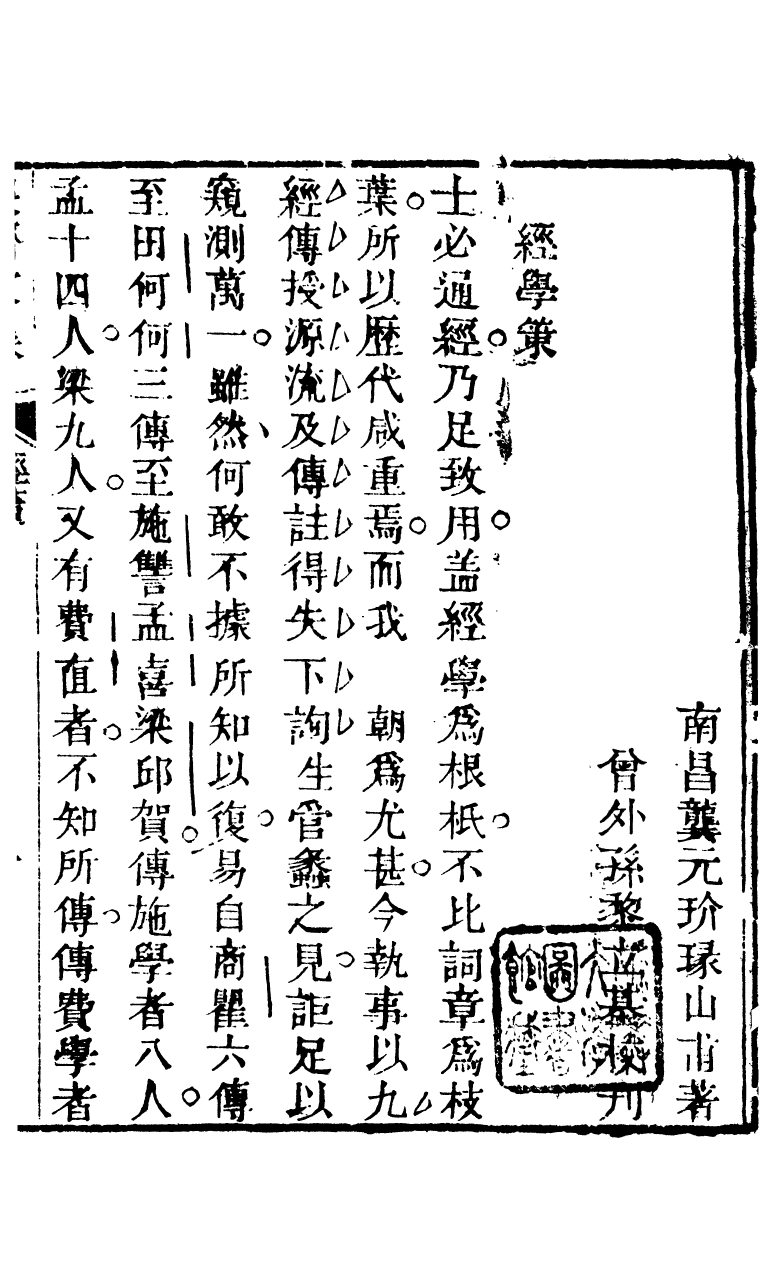 南昌龔元玠琭山甫著
曾外孫黎立基校刊
經學策
士必通經乃足致用盖經學爲根柢不比詞章爲枝
葉所以歷代咸重焉而我　朝爲尤甚今執事以九
經傳授源流及傳註得失下詢生管蠡之見詎足以
窺測萬一雖然何敢不據所知以復易自商瞿六傳
至田何何三傳至施讐孟喜梁邱賀傳施學者八人
孟十四人梁九人又有費直者不知所傳傳費學者